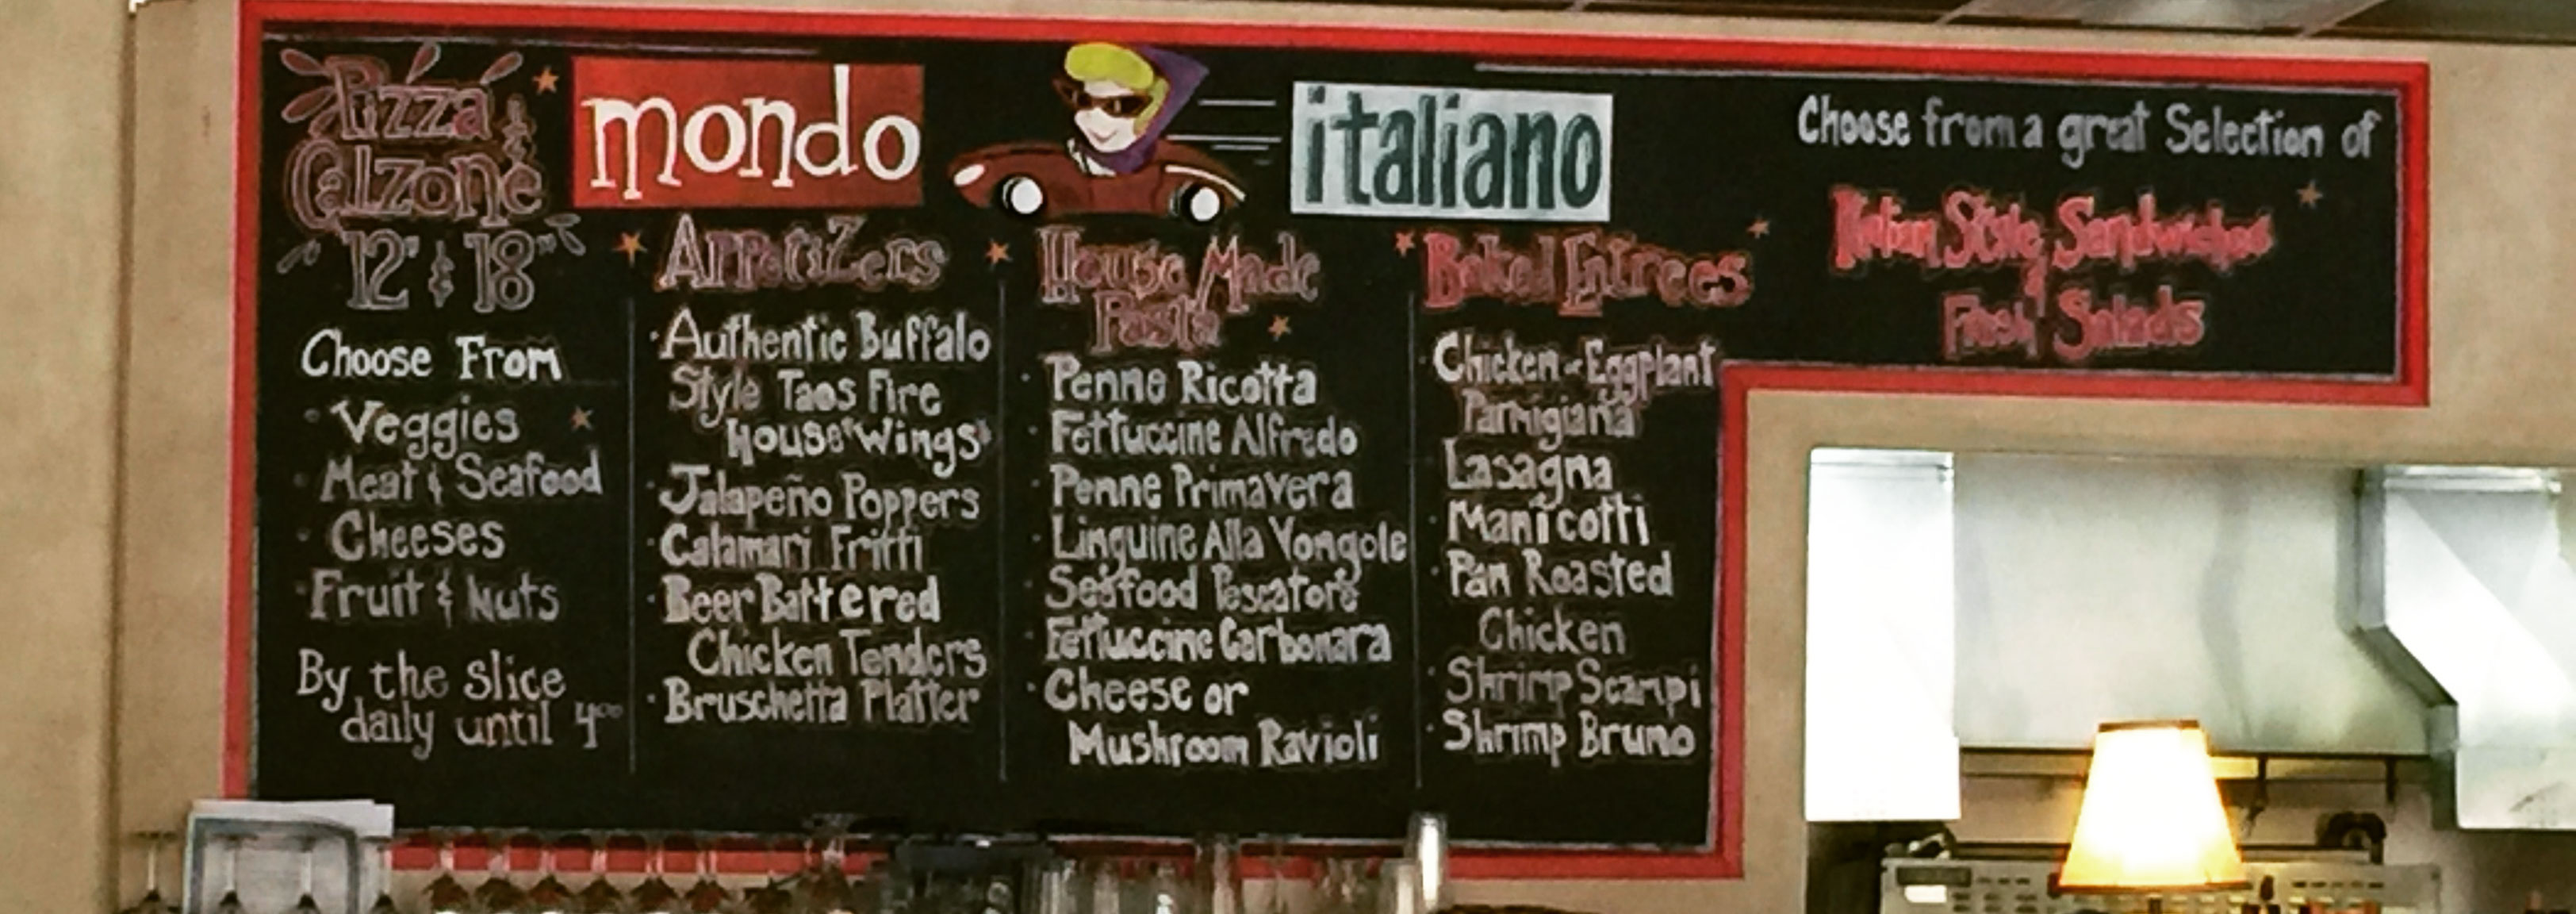 Pizza &
Calzone
12" & 18"
Choose From
· Veggies
· Meat & Seafood
· Cheeses
· Fruit & Nuts
By the slice
daily until 4°°
mondo
italiano
Appetizers
· Authentic Buffalo
Style Taos Fire
House "Wings"
· Jalapeño Poppers
· Calamari Fritti
· Beer Battered
Chicken Tenders
· Bruschetta Platter
House Made
Pasta
· Penne Ricotta
· Fettuccine Alfredo
· Penne Primavera
· Linguine Alla Vongole
· Seafood Pescatore
· Fettuccine Carbonara
· Cheese or
Mushroom Ravioli
Baked Entrees
· Chicken or Eggplant
Parmigiana
· Lasagna
· Manicotti
· Pan Roasted
Chicken
· Shrimp Scampi
· Shrimp Bruno
Choose from a great Selection of
Italian Style Sandwiches
&
Fresh Salads